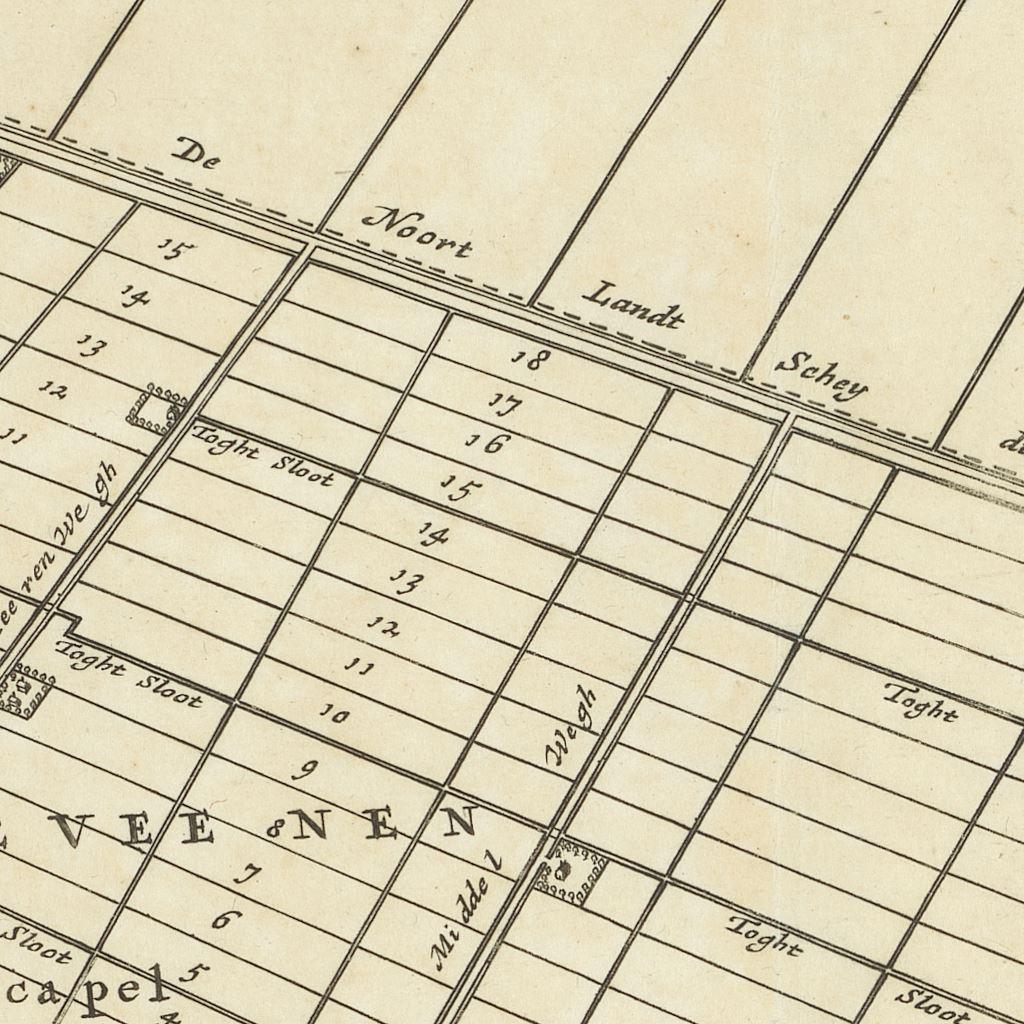 De Noort Landt Schey
15
14
13
12
11
18
17
16
15
14
13
12
11
10
9
8
7
6
5
4
Toght Sloot
ren Wegh
Toght Sloot
Toght
Wegh
VEENEN
Middel
Toght
Sloot
Sloot
capel